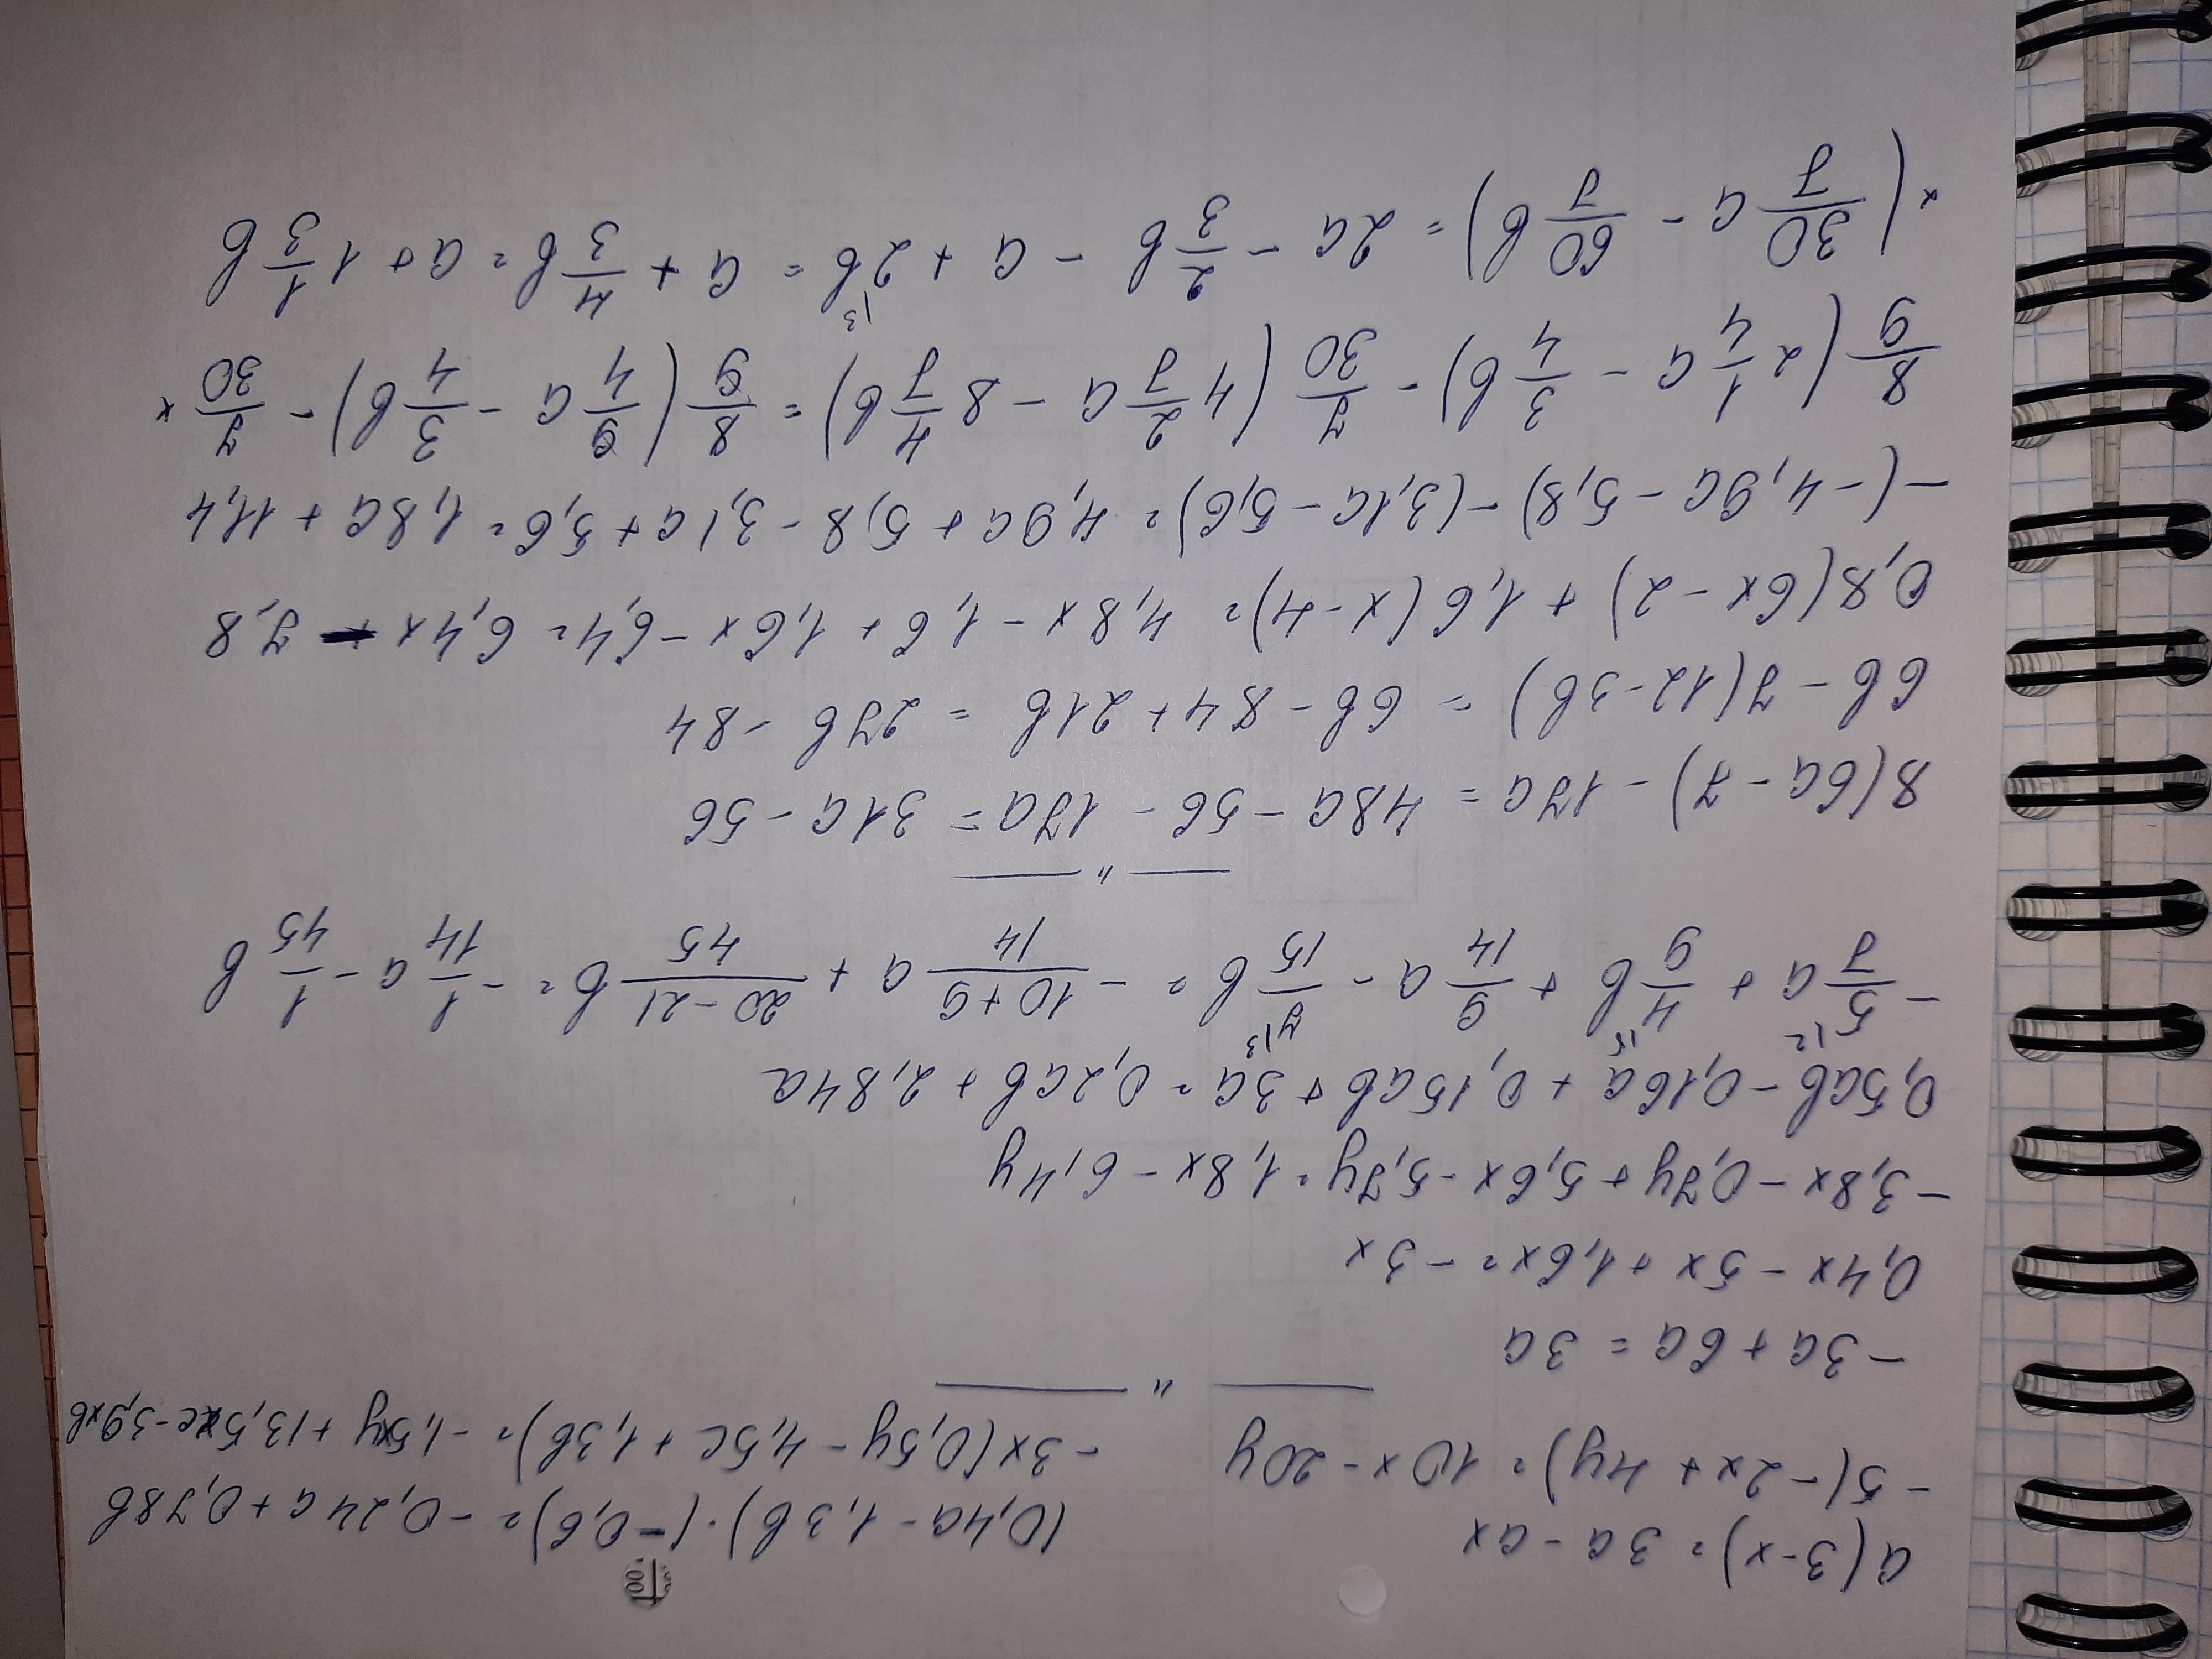 a(3-x)= 3a - ax
(0,4a - 1,3b)·(-0,6)= -0,24a + 0,78b
-5(-2x + 4y)= 10x - 20y
-3x(0,5y - 4,5c + 1,3b)= -1,5xy + 13,5xc - 3,9xb
— " —
-3a + 6a = 3a
0,4x - 5x + 1,6x = -3x
-3,8x - 0,7y + 5,6x - 5,7y = 1,8x - 6,4y
0,5ab - 0,16a + 0,15ab + 3a = 0,2ab + 2,84a
-5/7 a + 4/9 b + 9/14 a - 7/15 b = -10+9/14 a + 20-21/45 b = -1/14 a - 1/45 b
— " —
8(6a - 7) - 17a = 48a - 56 - 17a = 31a - 56
6b - 7(12 - 3b) = 6b - 84 + 21b = 27b - 84
0,8(6x - 2) + 1,6(x - 4) = 4,8x - 1,6 + 1,6x - 6,4 = 6,4x - 7,8
-(-4,9a - 5,8) - (3,1a - 5,6) = 4,9a + 5,8 - 3,1a + 5,6 = 1,8a + 11,4
8/9 (2 1/4 a - 3/4 b) - 7/30 (4 2/7 a - 8 4/7 b) = 8/9 (9/4 a - 3/4 b) - 7/30 ×
× (30/7 a - 60/7 b) = 2a - 2/3 b - a + 2b = a + 4/3 b = a + 1 1/3 b